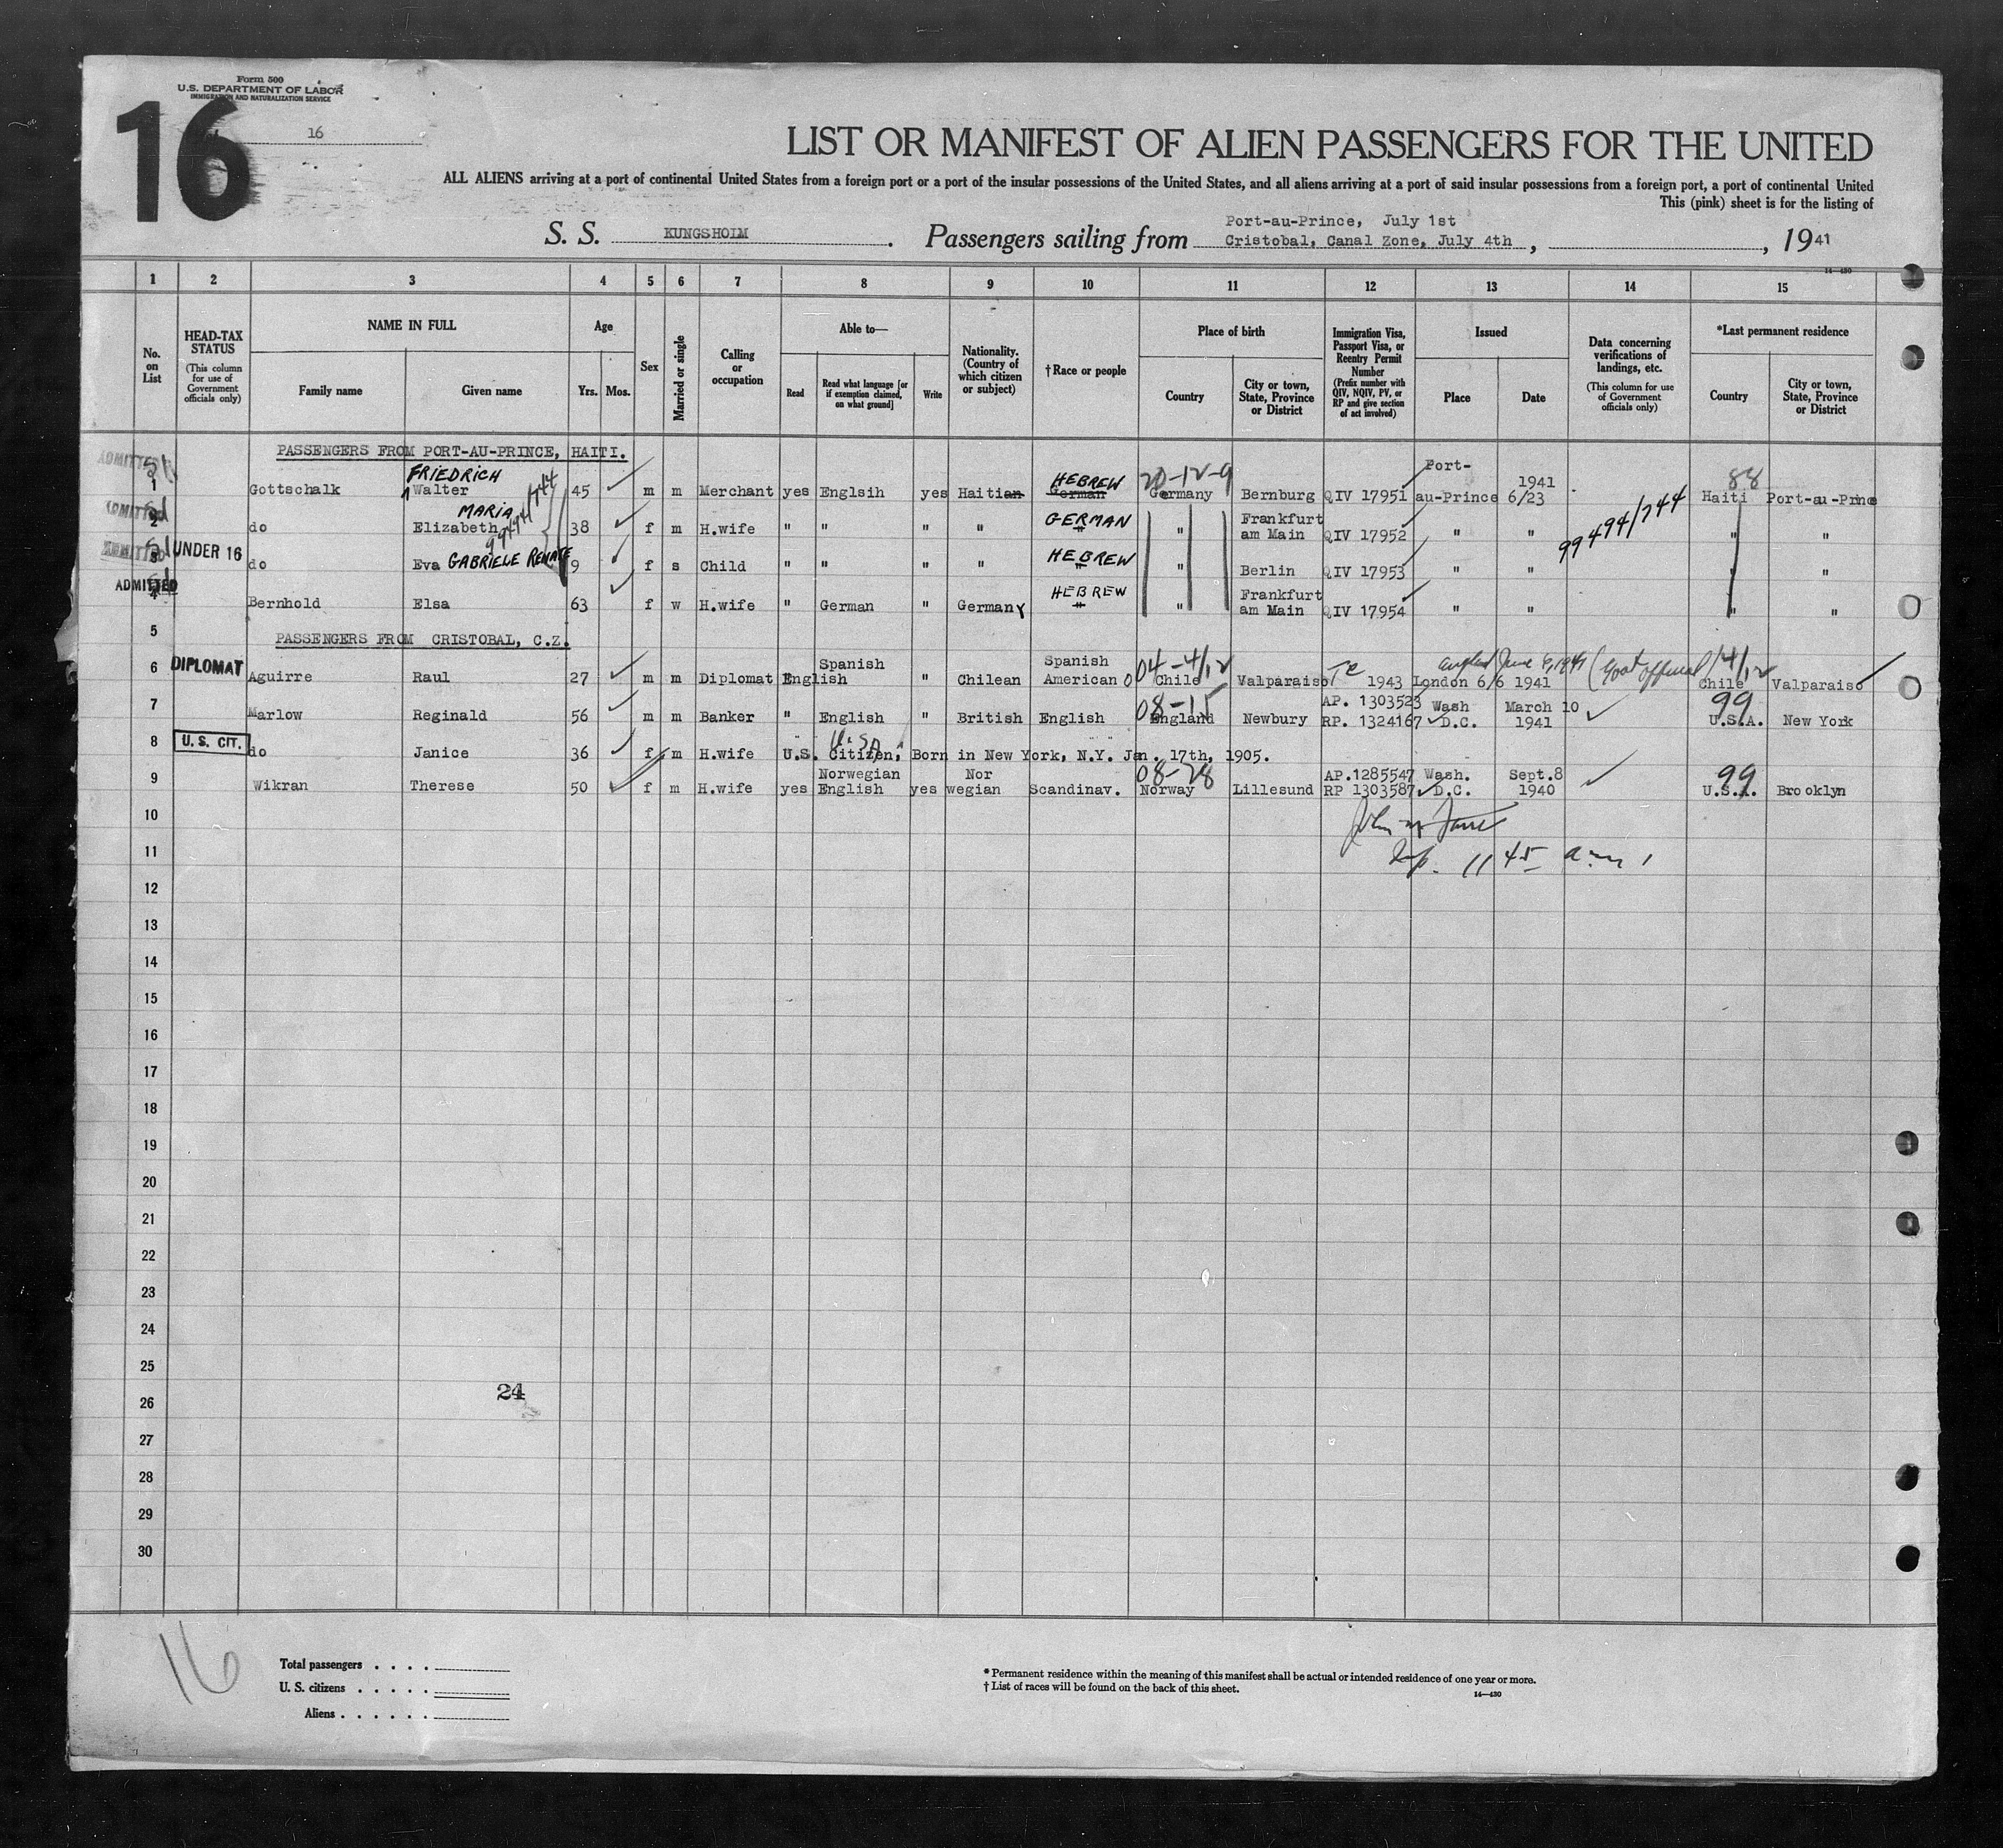 Form 500
U.S. DEPARTMENT OF LABOR
IMMIGRATION AND NATURALIZATION SERVICE
16
16
LIST OR MANIFEST OF ALIEN PASSENGERS FOR THE UNITED
ALL ALIENS arriving at a port of continental United States from a foreign port or a port of the insular possessions of the United States, and all aliens arriving at a port of said insular possessions from a foreign port, a port of continental United
This (pink) sheet is for the listing of
Port-au-Prince, July 1st
S. S. KUNGSHOLM. Passengers sailing from Cristobal, Canal Zone, July 4th, , 1941
14-430
1 2 3 4 5 6 7 8 9 10 11 12 13 14 15
No. on List
HEAD-TAX STATUS (This column for use of Government officials only)
NAME IN FULL
Family name Given name
Age
Yrs. Mos.
Sex
Married or single
Calling or occupation
Able to—
Read Read what language [or if exemption claimed, on what ground] Write
Nationality. (Country of which citizen or subject)
†Race or people
Place of birth
Country City or town, State, Province or District
Immigration Visa, Passport Visa, or Reentry Permit Number (Prefix number with QIV, NQIV, PV, or RP and give section of act involved)
Issued
Place Date
Data concerning verifications of landings, etc. (This column for use of Government officials only)
*Last permanent residence
Country City or town, State, Province or District
PASSENGERS FROM PORT-AU-PRINCE, HAITI.
ADMITTED FRIEDRICH HEBREW 20-12-9 Port- 1941 88
1 Gottschalk Walter 45 m m Merchant yes Englsih yes Haitian German Germany Bernburg QIV 17951 au-Prince 6/23 Haiti Port-au-Prince
ADMITTED MARIA 99494/744 GERMAN Frankfurt 99494/744
2 do Elizabeth 38 f m H.wife " " " " " " am Main QIV 17952 " " " "
ADMITTED UNDER 16 HEBREW
3 do Eva GABRIELE RENATE 9 f s Child " " " " " " Berlin QIV 17953 " " " "
ADMITTED HEBREW Frankfurt
4 Bernhold Elsa 63 f w H.wife " German " Germany " " am Main QIV 17954 " " " "
5 PASSENGERS FROM CRISTOBAL, C.Z.
DIPLOMAT Spanish Spanish 04-4/12 June 6, 1941 4/12
6 Aguirre Raul 27 m m Diplomat English " Chilean American Chile Valparaiso 1943 London 6/6 1941 Chile Valparaiso
08-15 AP. 1303523 Wash March 10 99
7 Marlow Reginald 56 m m Banker " English " British English England Newbury RP. 1324167 D.C. 1941 U.S.A. New York
U.S.A.
8 U. S. CIT. do Janice 36 f m H.wife U.S. Citizen, Born in New York, N.Y. Jan. 17th, 1905.
Norwegian Nor 08-28 AP.1285547 Wash. Sept.8 99
9 Wikran Therese 50 f m H.wife yes English yes wegian Scandinav. Norway Lillesund RP 1303587 D.C. 1940 U.S.A. Brooklyn
10
11 11 45 a.m.
12
13
14
15
16
17
18
19
20
21
22
23
24
25
24
26
27
28
29
30
16
Total passengers . . . .
U. S. citizens . . . . .
Aliens . . . . . .
* Permanent residence within the meaning of this manifest shall be actual or intended residence of one year or more.
† List of races will be found on the back of this sheet.
14—430